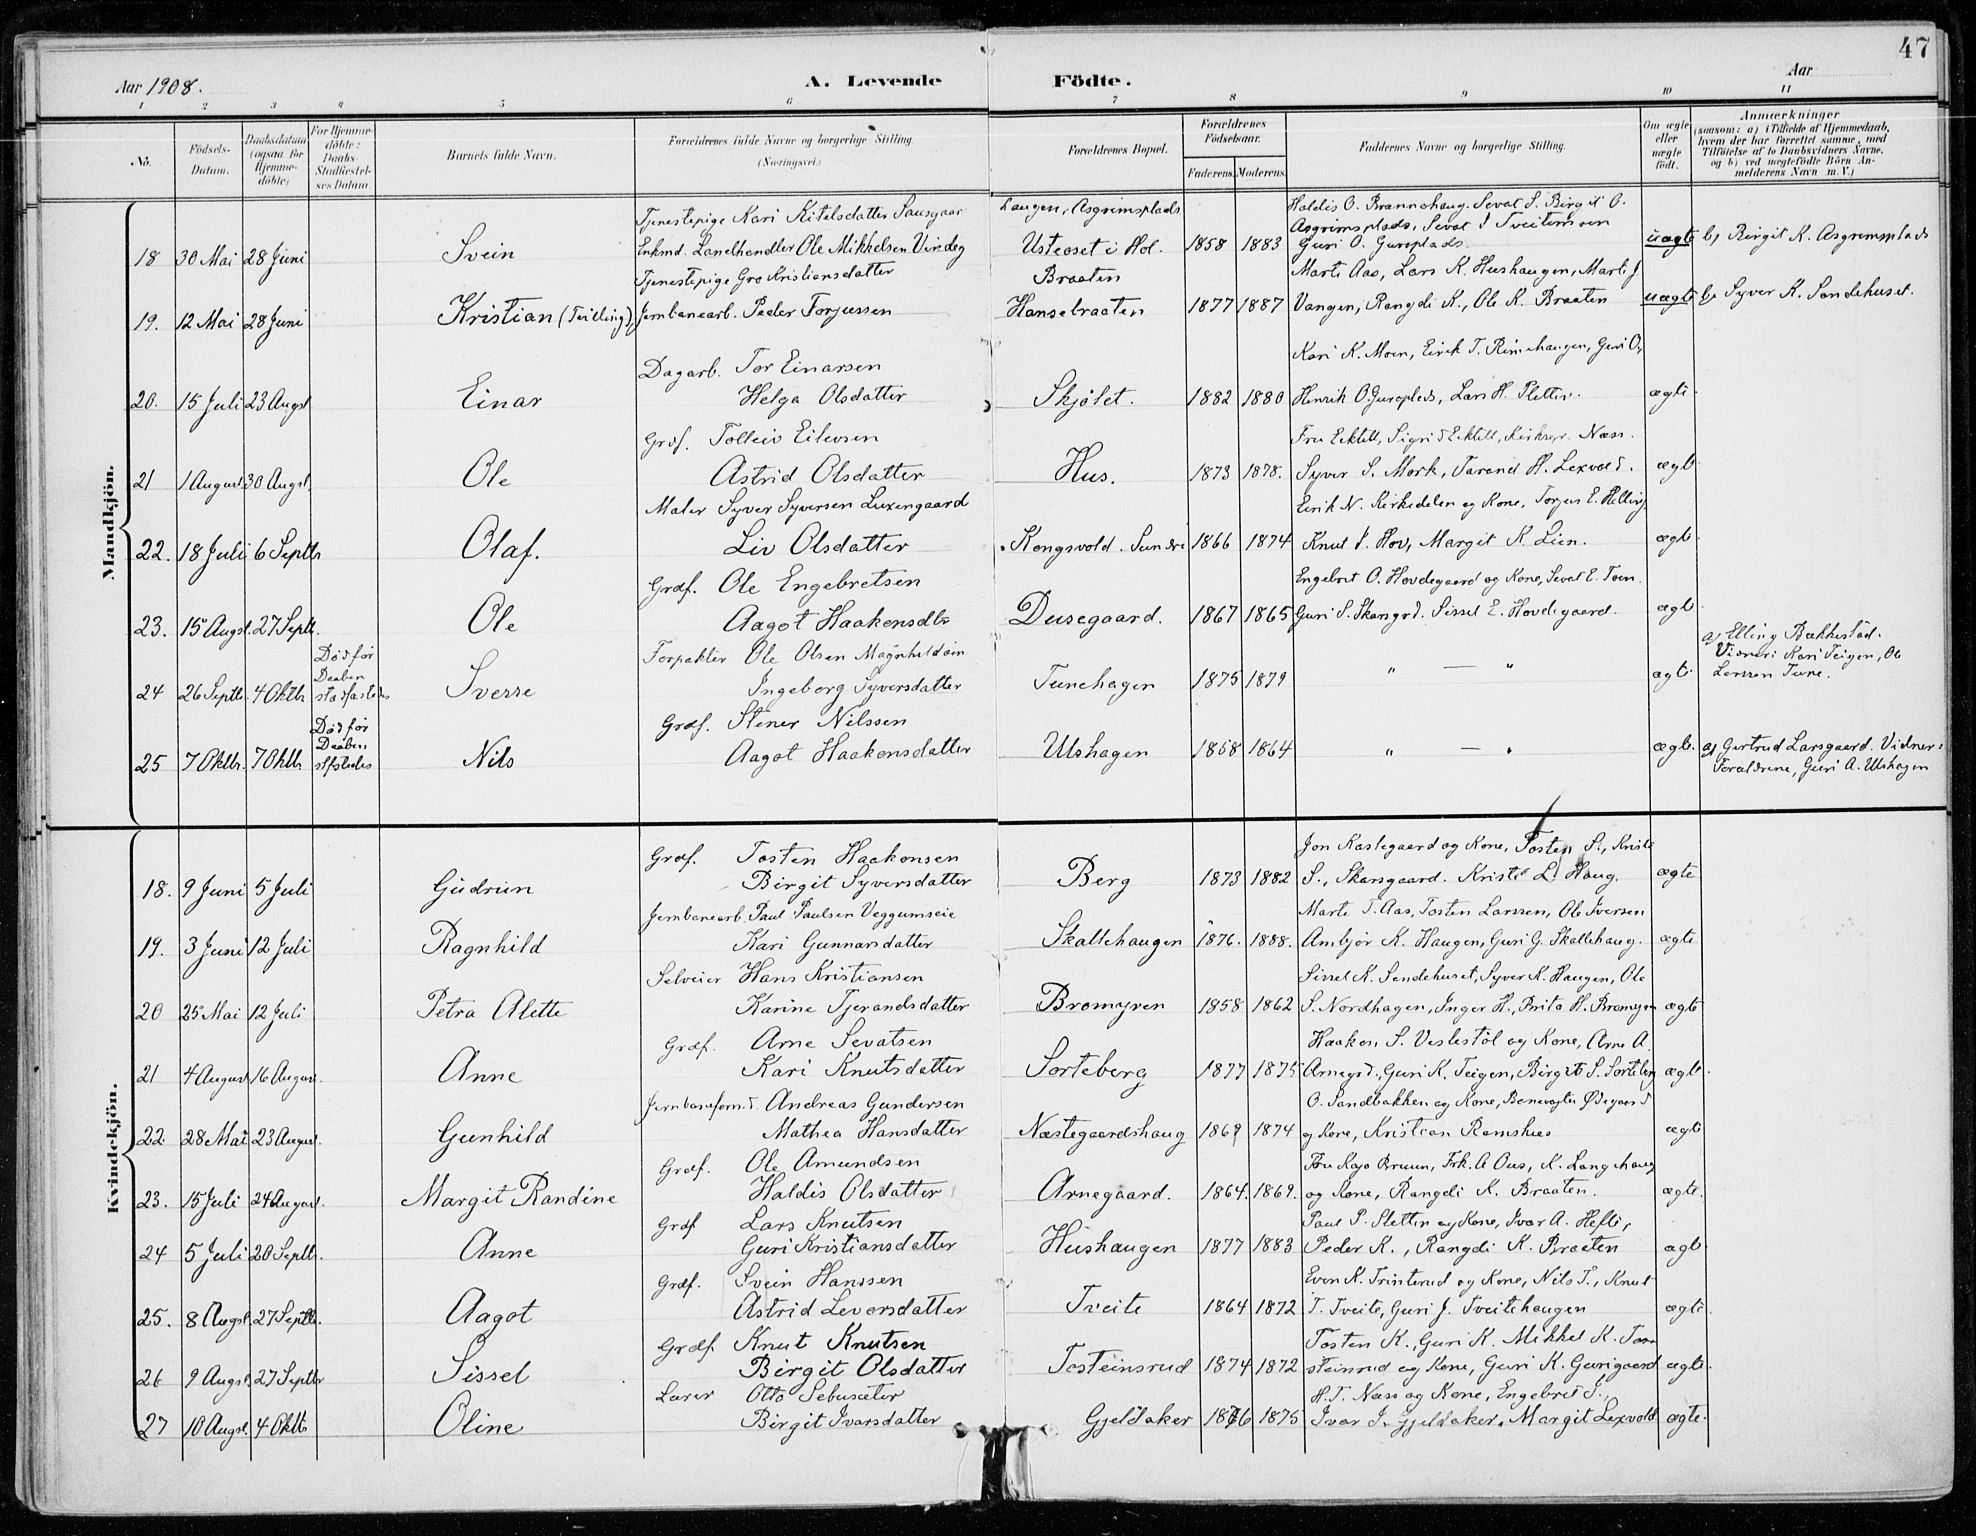 47
Aar 1908.
A. Levende Födte.
Aar
1 2 3 4 5 6 7 8 9 10 11
No.
Födsels-Datum.
Daabsdatum (ogsaa for Hjemmedöbte)
For Hjemmedöbte: Daabs-Stadfæstelses Datum.
Barnets fulde Navn.
Forældrenes fulde Navne og borgerlige Stilling (Næringsvei)
Forældrenes Bopæl.
Forældrenes Födselsaar.
Faderens. Moderens.
Faddernes Navne og borgerlige Stilling.
Om ægte eller uægte födt.
Anmærkninger
(saasom: a) i Tilfælde af Hjemmedaab, hvem der har forrettet samme, med Tilföielse af to Daabsvidners Navne, og b) ved uægtefödte Börn Anmelderens Navn m. V.)
Mandkjön.
Tjenestepige Kari Kitelsdatter Sausgaar Haugen, Asgrimsplads Haldis O. Brannehaug. Sevat S. Birgit O.
Asgrimsplads, Sevat
18 30 Mai 28 Juni Svein Enkmd. Landhandler Ole Mikkelsen Usteoset i Hol. 1858 1883 Guri O. Guroplads. uægte b) Birgit K. Asgrimsplads
Tjenestepige Gro Kristiansdatter Braaten Marte Aas, Lars K. Hushaugen, Marte J
19. 12 Mai 28 Juni Kristian (Tvilling), Jernbanearb. Peder Torjussen Hansebraaten 1877 1887 Vangen, Rangdi K., Ole K. Braaten uægte b) Syver K. Søndehuset.
Dagarb. Tor Einarsen Kari K. Moen, Eirik T. Rimehaugen, Guri O,
20. 15 Juli 23 Augst Einar Helga Olsdatter Skjølet. 1882 1880 Henrik O. Guroplads, Lars H. Sletten. ægte
Grdf. Tolleiv Eilevsen Fru Ecktell, Sigrid Ecktell, Kirksgr. Næss.
21 1 August 30 Augst. Ole Astrid Olsdatter Hus. 1873 1878. Syver S. Mork, Tarand H. Lexvold. ægte
Maler Syver Syversen Luxengaard Eirik N. Kirkedelen og Kone, Torjus E. Helling
22. 18 Juli 6 Septb Olaf. Liv Olsdatter Kongsvold. Sundre 1866 1874 Knut J. Hov, Margit K. Lien. ægte
Grdf. Ole Engebretsen Engebret O. Hovdegaard og Kone, Sevat E. Toen
23. 15 Augst. 27 Septb. Ole Aagot Haakensdtr Dusegaard. 1867 1865 Guri S. Skarsgrd. Sissel E. Hovdegaard. ægte
Forpakter Ole Olsen Magnhildøin a) Elling Bækkestad.
24 26 Septb. 4 Oktb Død før Daaben stadfæstedes Sverre Ingeborg Syversdatter Tunehagen 1875 1879 " — " ægte Vidner: Kari Teigen, Ole Larssen Tune.
Grdf. Stener Nilssen
25 7 Oktb. 7 Oktb Død før Daaben stfstedes Nils Aagot Haakonsdatter Ulshagen 1858 1864 " — " ægte. a) Gertrud Larsgaard. Vidner: Forældrene, Guri A. Ulshagen
Kvindekjön.
Grdf. Tosten Haakonsen Jon Kastegaard og Kone, Tosten S., Kristi
18. 9 Juni 5 Juli Gudrun Birgit Syversdatter Berg 1873 1882 S., Skarsgaard. Kristi L. Haug. ægte
Jernbanearb. Paul Paulsen Veggumseie Marte T. Aas, Tosten Larssen, Ole Iversen
19. 3 Juni 12 Juli Ragnhild Kari Gunnarsdatter Skallehaugen 1876. 1888. Ambjør K. Haugen, Guri G. Skallehaug. ægte
Selveier Hans Kristiansen Sissel K. Søndehuset, Syver K. Haugen, Ole
20 25 Mai 12 Juli Petra Alette Karine Tjerandsdatter Bromyren 1858 1862 S. Nordhagen, Inger H., Brita H. Bromyren ægte
Grdf. Arne Sevatsen Haakon S. Veslestöl og Kone, Arne A.
21 4 August 16 August. Anne Kari Knutsdatter Sorteberg 1877 1875 Arnegrd., Guri K. Teigen, Birgit S. Sorteberg ægte
Jernbaneformd. Andreas Gundersen O. Sandbakken og Kone, Banevogter Ødegaard
22 28 Mai 23 August. Gunhild Mathea Hansdatter Næstegaardshaug 1869 1874 og Kone, Kristian Ramshus ægte
Grdf. Ole Amundsen Fru Kaja Bruun, Frk. A Ous, K. Langehaug
23. 15 Juli 24 August. Margit Randine Haldis Olsdatter Arnegaard. 1864. 1869. og Kone, Rangdi K. Braaten. ægte.
Grdf Lars Knutsen Paul P. Sletten og Kone, Ivar A. Hefte,
24 5 Juli 20 Septb. Anne Guri Kristiansdatter Hushaugen 1877 1883 Peder K., Rangdi K. Braaten ægte
Grdf. Svein Hanssen Even K. Trinterud og Kone, Nils T., Knut
25. 8 Augst. 27 Septb. Aagot Astrid Leversdatter Tveite 1864 1872 T. Tveite, Guri J. Tveitehaugen ægte
Grdf. Knut Knutsen Tosten K., Guri K. Mikkel K. To
26 9 Augst. 27 Septb Sissel Birgit Olsdatter Tosteinsrud 1874 1872 steinsrud og Kone, Guri K. Gurigaard ægte.
Lærer Otto Sebuseter H. T. Næss og Kone, Engebret I.,
27 10 Augst. 4 Oktb Oline Birgit Ivarsdatter Gjeldaker 1876 1875 Ivar I. Gjeldaker, Margit Lexvold ægte.